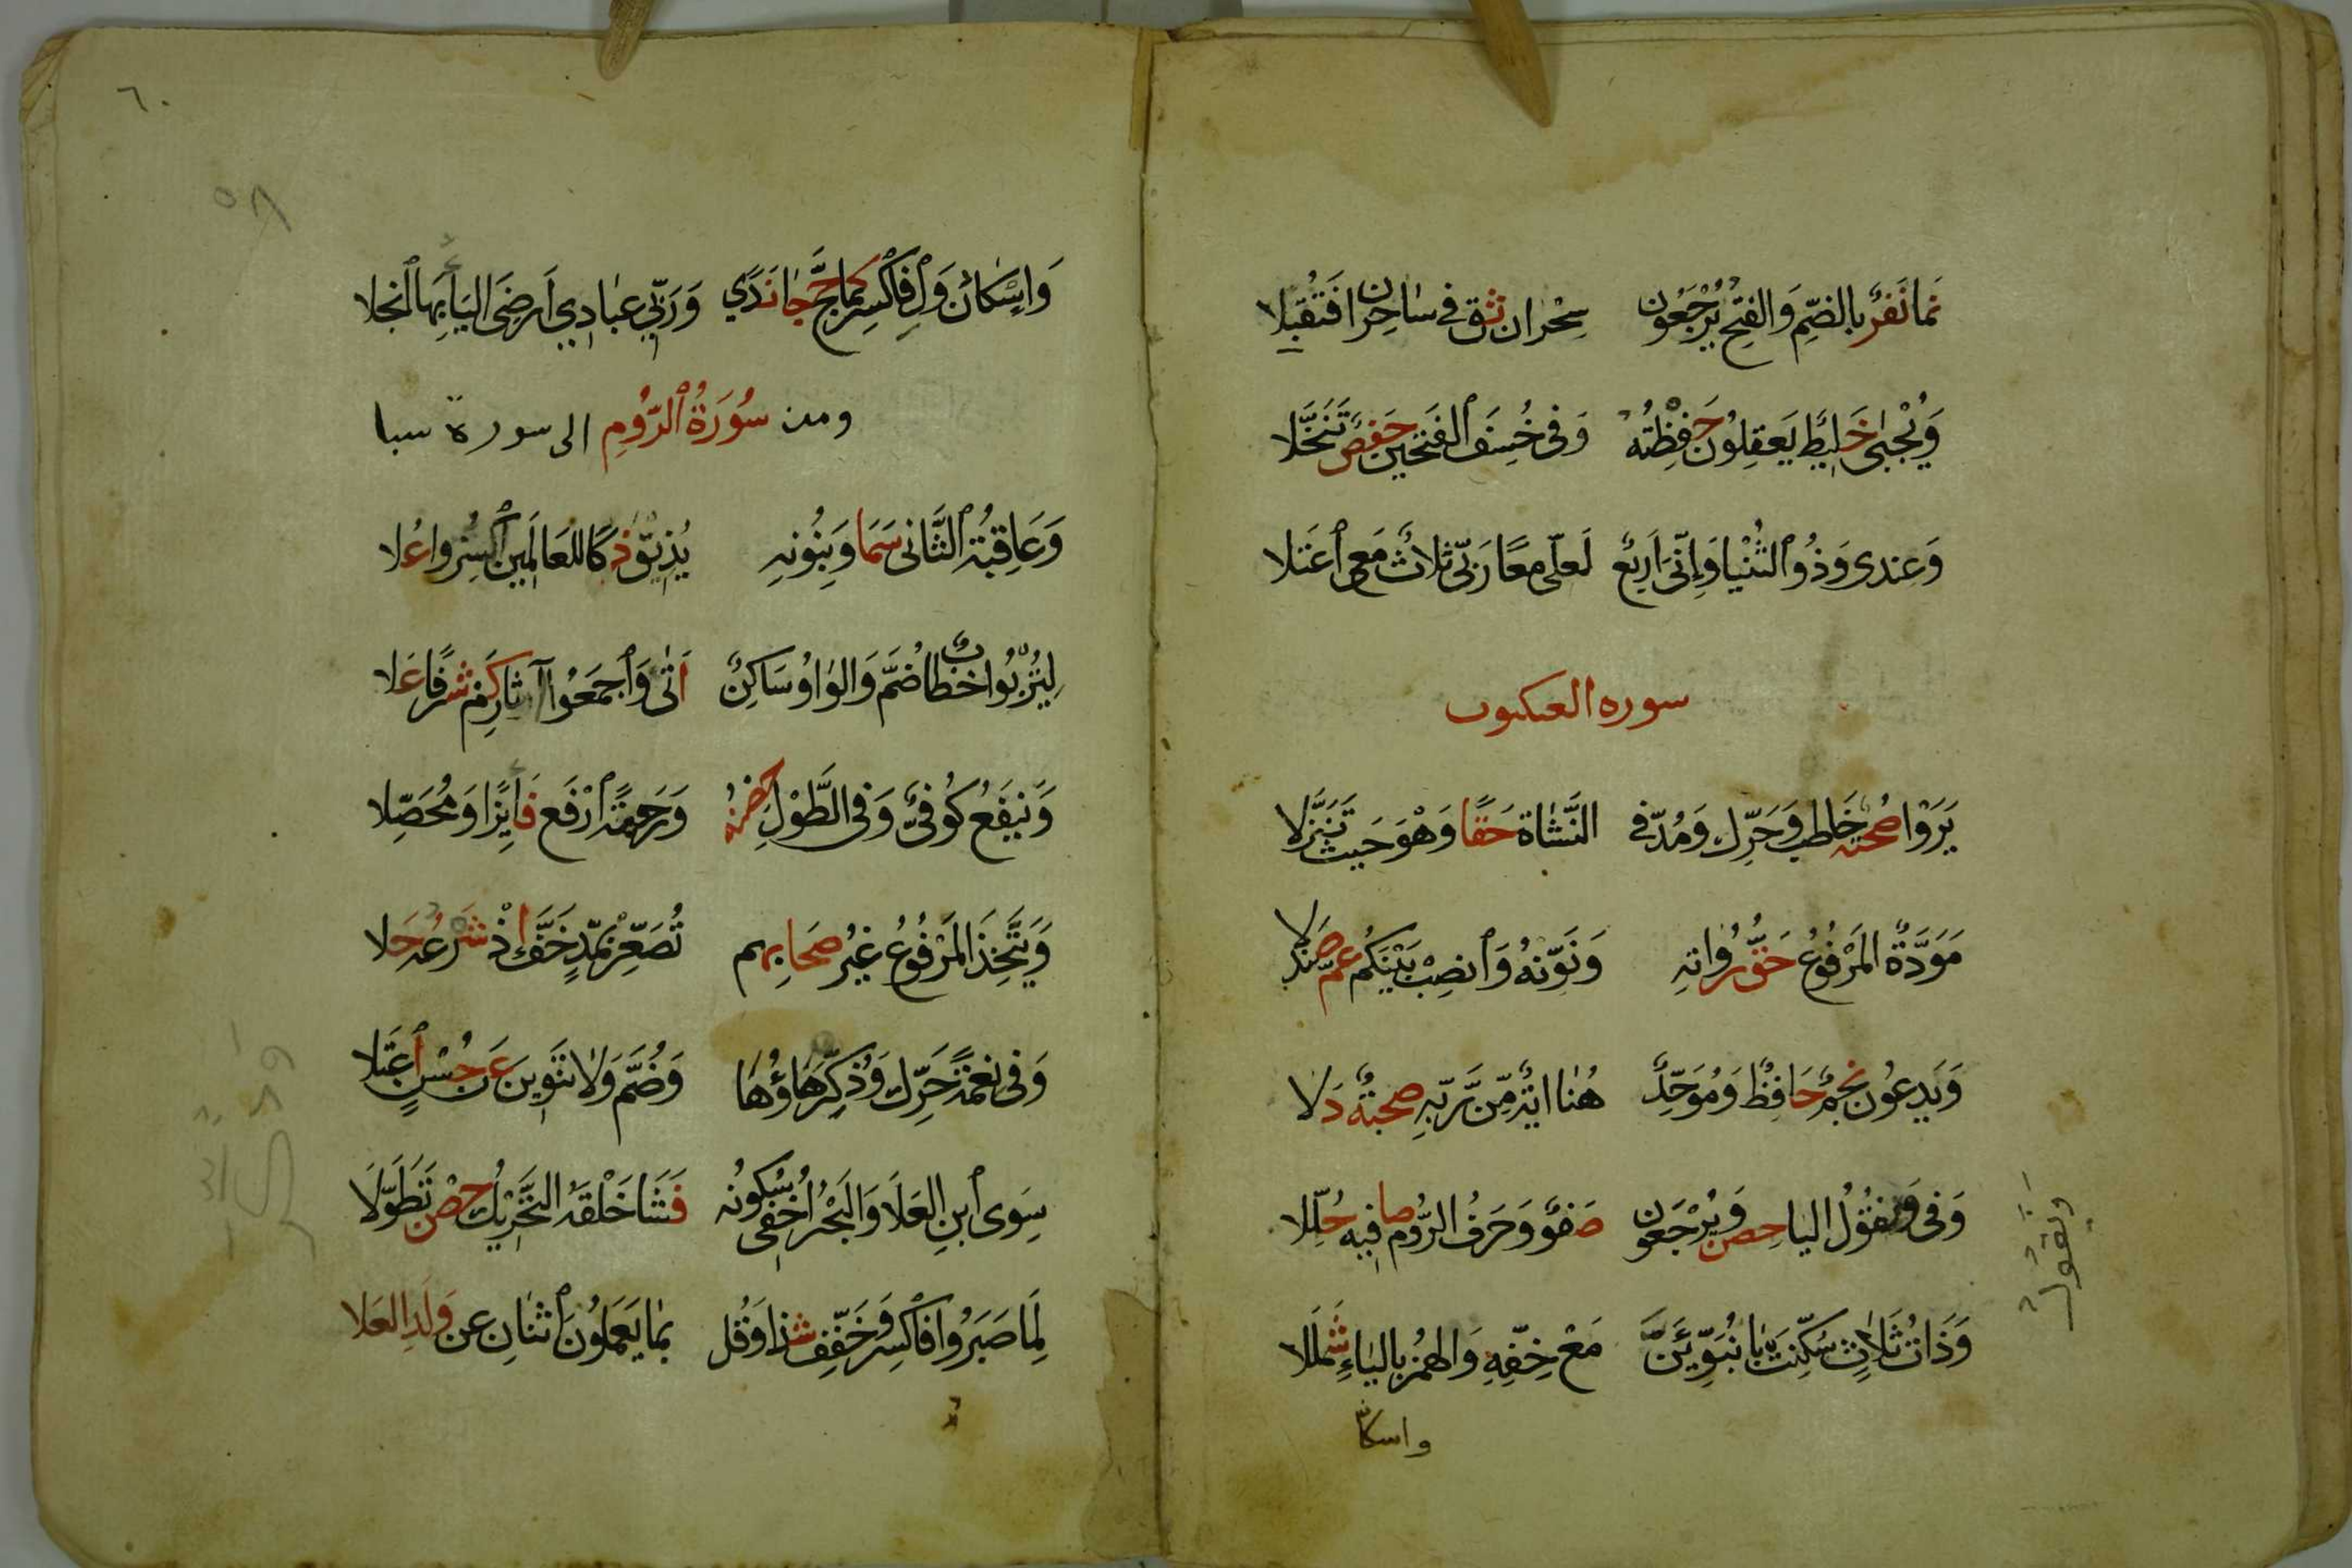 نَمَا نَفَرٌ بِالضَّمِّ وَالفَتْحِ يُرْجَعُونَ سِحْرَانِ ثِقْ فِي سَاحِرَانِ فَتُقْبَلَا
وَيُجْبَى خَلِيطٌ يَعْقِلُونَ حَفِظْتُهُ وَفِي خُسِفَ الْفَتْحَيْنِ حَفْصٌ تَنَخَّلَا
وَعِنْدِي وَذُو الثُّنْيَا وَإِنِّي أَرْبَعٌ لَعَلِّي مَعًا رَبِّي ثَلَاثٌ مَعِي اعْتَلَا
سوره العنكبوت
يَرَوْا صُحْبَةٌ خَاطِبْ وَحَرِّكْ وَمُدَّ فِي النَّشَاةِ حَقًّا وَهْوَ حَيْثُ تَنَزَّلَا
مَوَدَّةٌ المَرْفُوعُ حَقُّ رُوَاتِهِ وَنَوِّنْهُ وَانْصِبْ بَيْنَكُمْ عَمَّ صَنْدَلَا
وَيَدْعُونَ نَجْمٌ حَافِظٌ وَمُوَحِّدٌ هُنَا ايَةٌ مِّن رَّبِّهِ صُحْبَةٌ دَلَا
وَفِي وَنَقُولُ اليَا حِصْنٌ وَيُرْجَعُونَ صَفْوٌ وَحَرْفُ الرُّومِ صَافِيهِ حُلِّلَا
ويَقُول
وَذَاتُ ثَلَاثٍ سُكِّنَتْ بَا نُبَوِّئَنَّ مَعْ خِفِّهِ وَالهَمْزُ بِاليَاءِ شَمْلَلَا
واسكان
٦٠
٥٨
وَاِسْكَانُ وَلْ فَاكْسِرْ كَمَا حَجَّ جَا نَدًى وَرَبِّي عِبَادِي أَرْضِيَ اليَا بِهَا انْجَلَا
ومن سُورَةُ الرُّومِ الى سورة سبا
وَعَاقِبَةُ الثَّانِي سَمَا وَبِنُونِهِ يُذِيقُ ذَكَا لِلعَالَمِينَ اكْسِرُوا عُلَا
لِيُرْبُوا خِطَابٌ ضُمَّ وَالوَاوُ سَاكِنٌ أَتَى وَاجْمَعُوا آثَارِ كَمْ شَرَفًا عَلَا
وَيَنْفَعُ كُوفِيٌّ وَفِي الطَّوْلِ حِصْنُهُ وَرَحْمَةً ارْفَعْ فَايِزًا وَمُحَصِّلَا
وَيَتَّخِذَ المَرْفُوعُ غَيْرُ صِحَابِهِم تُصَعِّرْ بِمَدٍّ خَفَّ إِذْ شَرْعُهُ حَلَا
وَفِي نِعْمَةً حَرِّكْ وَذُكِّرَ هَاؤُهَا وَضُمَّ وَلَا تَنْوِينَ عَنْ حُسْنٍ اعْتَلَا
سِوَى ابْنِ العَلَا وَالبَحْرُ أُخْفِي سُكُونُهُ فَشَا خَلْقَهُ التَّحْرِيكُ حِصْنٌ تَطَوَّلَا
لِمَا صَبَرُوا فَاكْسِرْ وَخَفِّفْ شَذًا وَقُلْ بِمَا يَعْمَلُونَ اثْنَانِ عَنْ وَلَدِ العَلَا